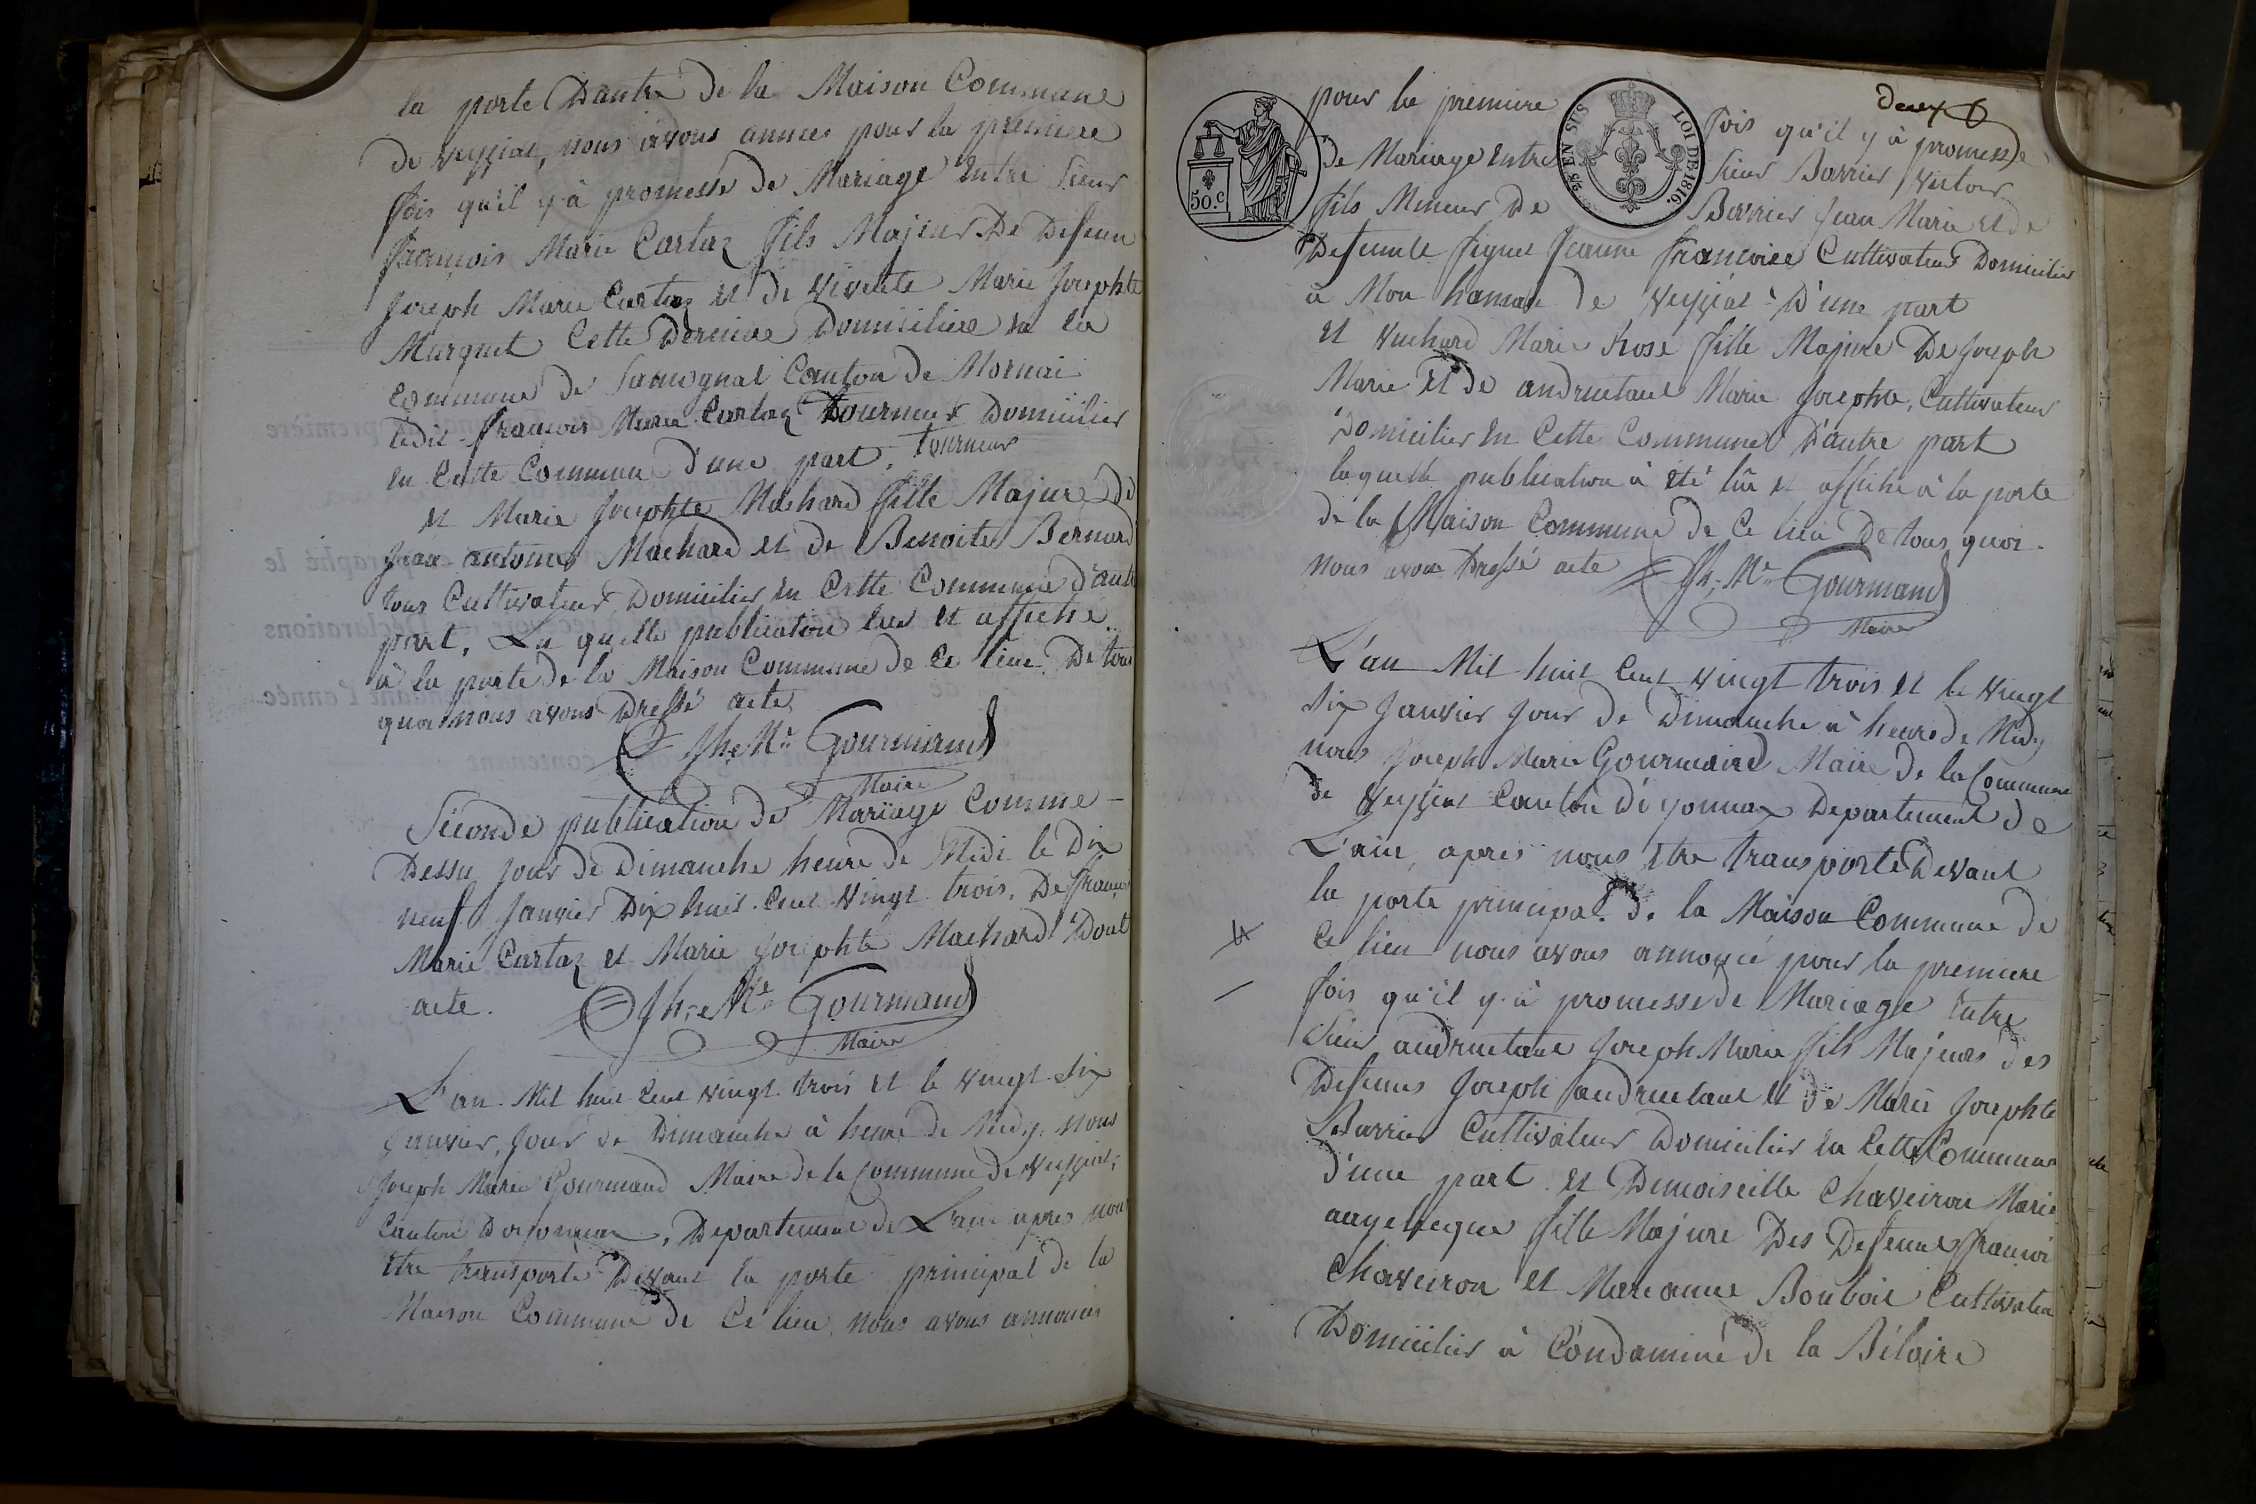 la porte Dantre de la Maison Commune
de veyziat, nous avons annoncé pour la premiere
fois qu'il y à promesse de Mariage Entre Sieur
françois Marie Cartaz fils Majeur De Defeun
Joseph Marie Cartaz et de vivente Marie Josephte
Murgnet Cette Derniere Domiciliere en la
Commune de Samognat Canton de Mornai
ledit françois Marie Cartaz Tourneur Domicilier
en Cette Commune d'une part. Tourneur
et Marie Josephte Machard fille Majure de
Jean antoine Machard et de Benoite Bernard
tous Cultivateur Domicilier en Cette Commune d'autre
part, La quelle publication lue et affiche
à la porte de la Maison Commune de Ce lieu. De tous
quoi nous avons Dressé acte
Jh. Me Gourmand
Maire
Seconde publication de Mariage Comme
Dessu jour de Dimanche heure de Midi le Dix
neuf Janvier Dix huit Cent Vingt trois. De françois
Marie Cartaz et Marie Josephte Machard Dont
acte.
Jh. Me Gourmand
Maire
L'an Mil huit Cent vingt trois et le vingt Six
Janvier, jour de Dimanche à heure de Midy. Nous
Joseph Marie Gourmand Maire de la Commune de Veyziat,
Canton Doyonnax, Departement de L'ain apres nous
être transporte Devant la porte principal de la
Maison Commune de Ce lieu nous avons annoncé
deux
50.c
25 EN SUS
LOI DE 1816.
pour la premiere fois qu'il y à promesse
De Mariage Entre Sieur Barrier Victor
fils Mineur De Barrier Jean Marie et de
Defeunte Jeanne françoise Cultivateur Domicilier
à Mon hameau de Veyziat D'une part
et Vuchard Marie Rose fille Majure De Joseph
Marie Et de andruetant Marie Josephte, Cultivateur
Domicilier en Cette Commune D'autre part
laquelle publication à été lûe et affiche à la porte
de la Maison Commune de Ce lieu De tous quoi
nous avons Dressé acte
Jh. Me Gourmand
Maire
L'an Mil huit Cent vingt trois et le vingt
Six Janvier jour de Dimanche à heure de Midy
nous Joseph Marie Gourmand Maire de la Commune
de Veyziat Canton D'oyonnax Departement de
L'ain, apres nous être transporté Devant
la porte principal de la Maison Commune de
Ce lieu nous avons annoncé pour la premiere
fois qu'il y à promesse de Mariage Entre
Sieur andruetant Joseph Marie fils Majeurs des
Defeuns Joseph andruetant et de Marie Josephte
Barrier Cultivateur Domicilier en Cette Commune
d'une part et Demoiselle Chaveiron Marie
angelique fille Majure Des Defeuns françoi
Chaveiron et Marianne Bouboit Cultivateur
Domicilier à Condamine de la Béloire